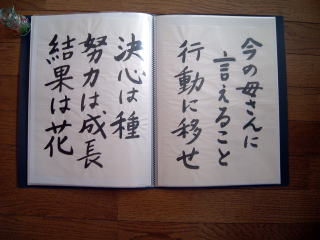 今の母さんに
言えること
行動に移せ
決心は種
努力は成長
結果は花